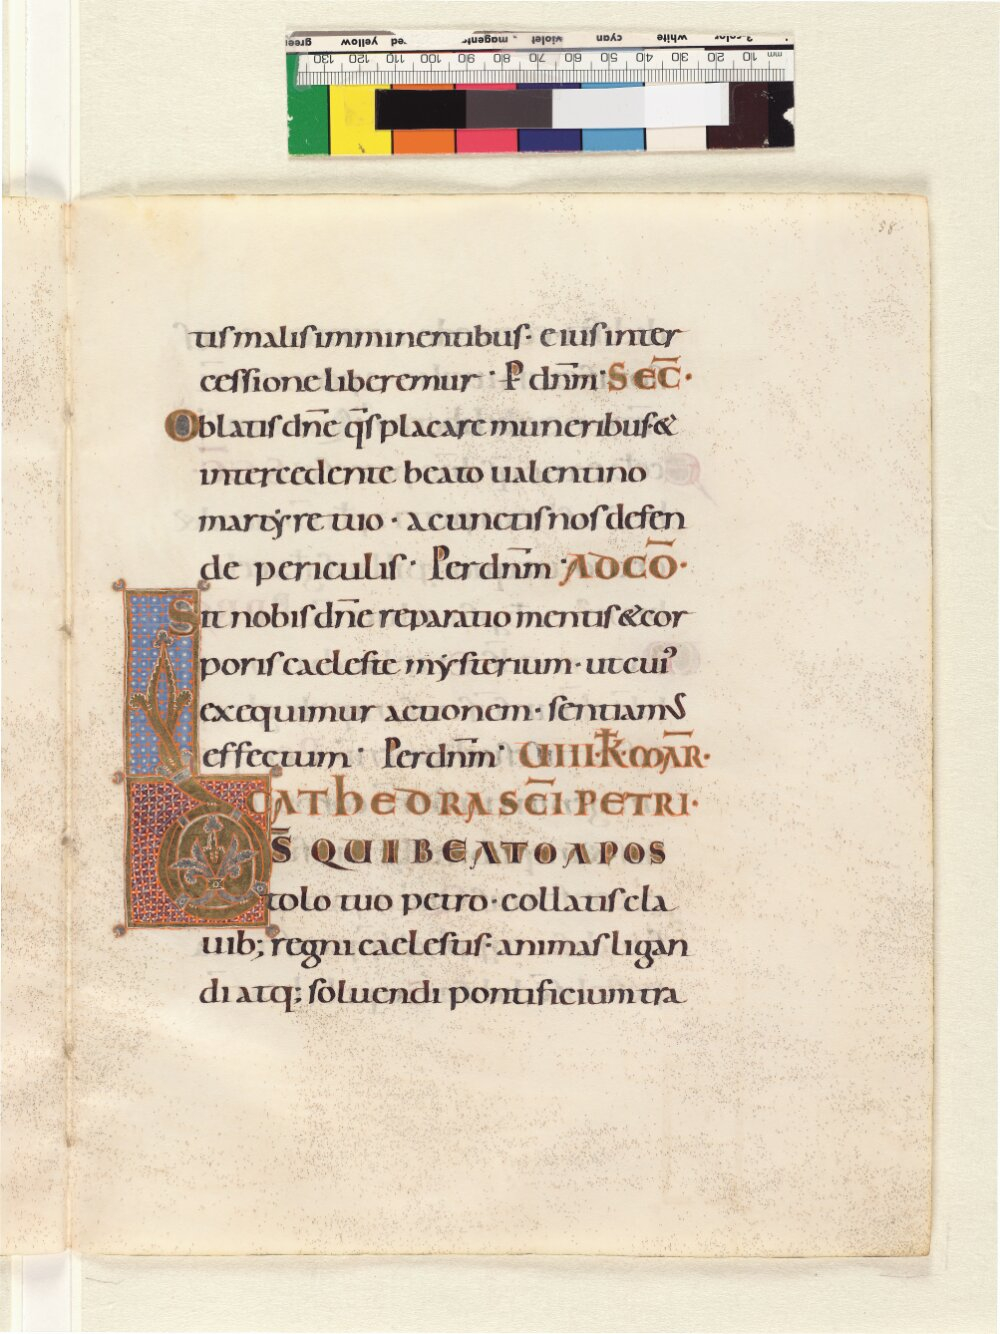 58
tis malis imminentibus· eius inter
cessione liberemur· P dn̄m· SEC̄·
Oblatis dn̄e q̄s placare muneribus &
intercedente beato ualentino
martẏre tuo· a cunctis nos defen
de periculis· Per dn̄m· AD CŌ·
Sit nobis dn̄e reparatio mentis & cor
poris caeleste mẏsterium· ut cui᾽
exequimur actionem· sentiamus
effectum· Per dn̄m· UIIII· K̄· MAR̄·
CATHEDRA SC̄I PETRI·
DS̄ QUI BEATO APOS
tolo tuo petro· collatis cla
uib; regni caelestis· animas ligan
di atq; soluendi pontificium tra